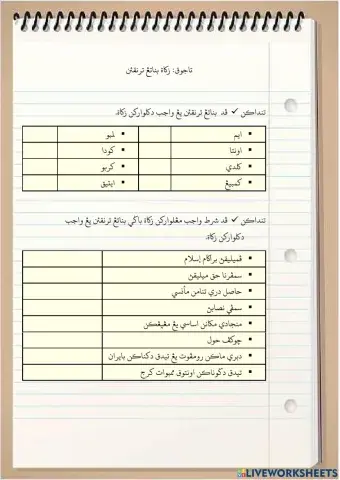 تاجوق: زكاة بناتڠ ترنقن
تنداکن ✓ قد بناتڠ ترنقن يڠ واجب دکلوارکن زكاة.
▪ ايم
▪ لمبو
▪ اونتا
▪ کودا
▪ کلدي
▪ کربو
▪ کمبيڠ
▪ ايتيق
تنداکن ✓ قد شرط واجب مڠلوارکن زكاة باݢي بناتڠ ترنقن يڠ واجب
دکلوارکن زكاة.
▪ ڤميليقن براݢام إسلام
▪ سمڤرنا حق ميليقن
▪ حاصل دري تنامن
▪ سمڤي نصابن
▪ منجادي مکانن اساسي يڠ مڠيڠکن
▪ چوکڤ حول
▪ دبري ماکن رومڤوت يڠ تيدق دکناکن بايران
▪ تيدق دݢوناکن اونتوق ممبوات کرج
LIVEWORKSHEETS